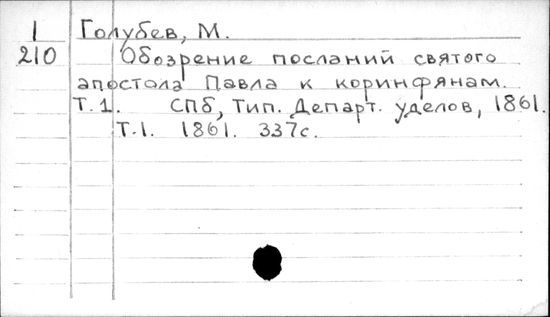 1 Голубев, М.
210 Обозрение посланий святого
апостола Павла к коринфянам.
Т.1. СПб, Тип. Департ. уделов, 1861.
Т.1. 1861. 337с.